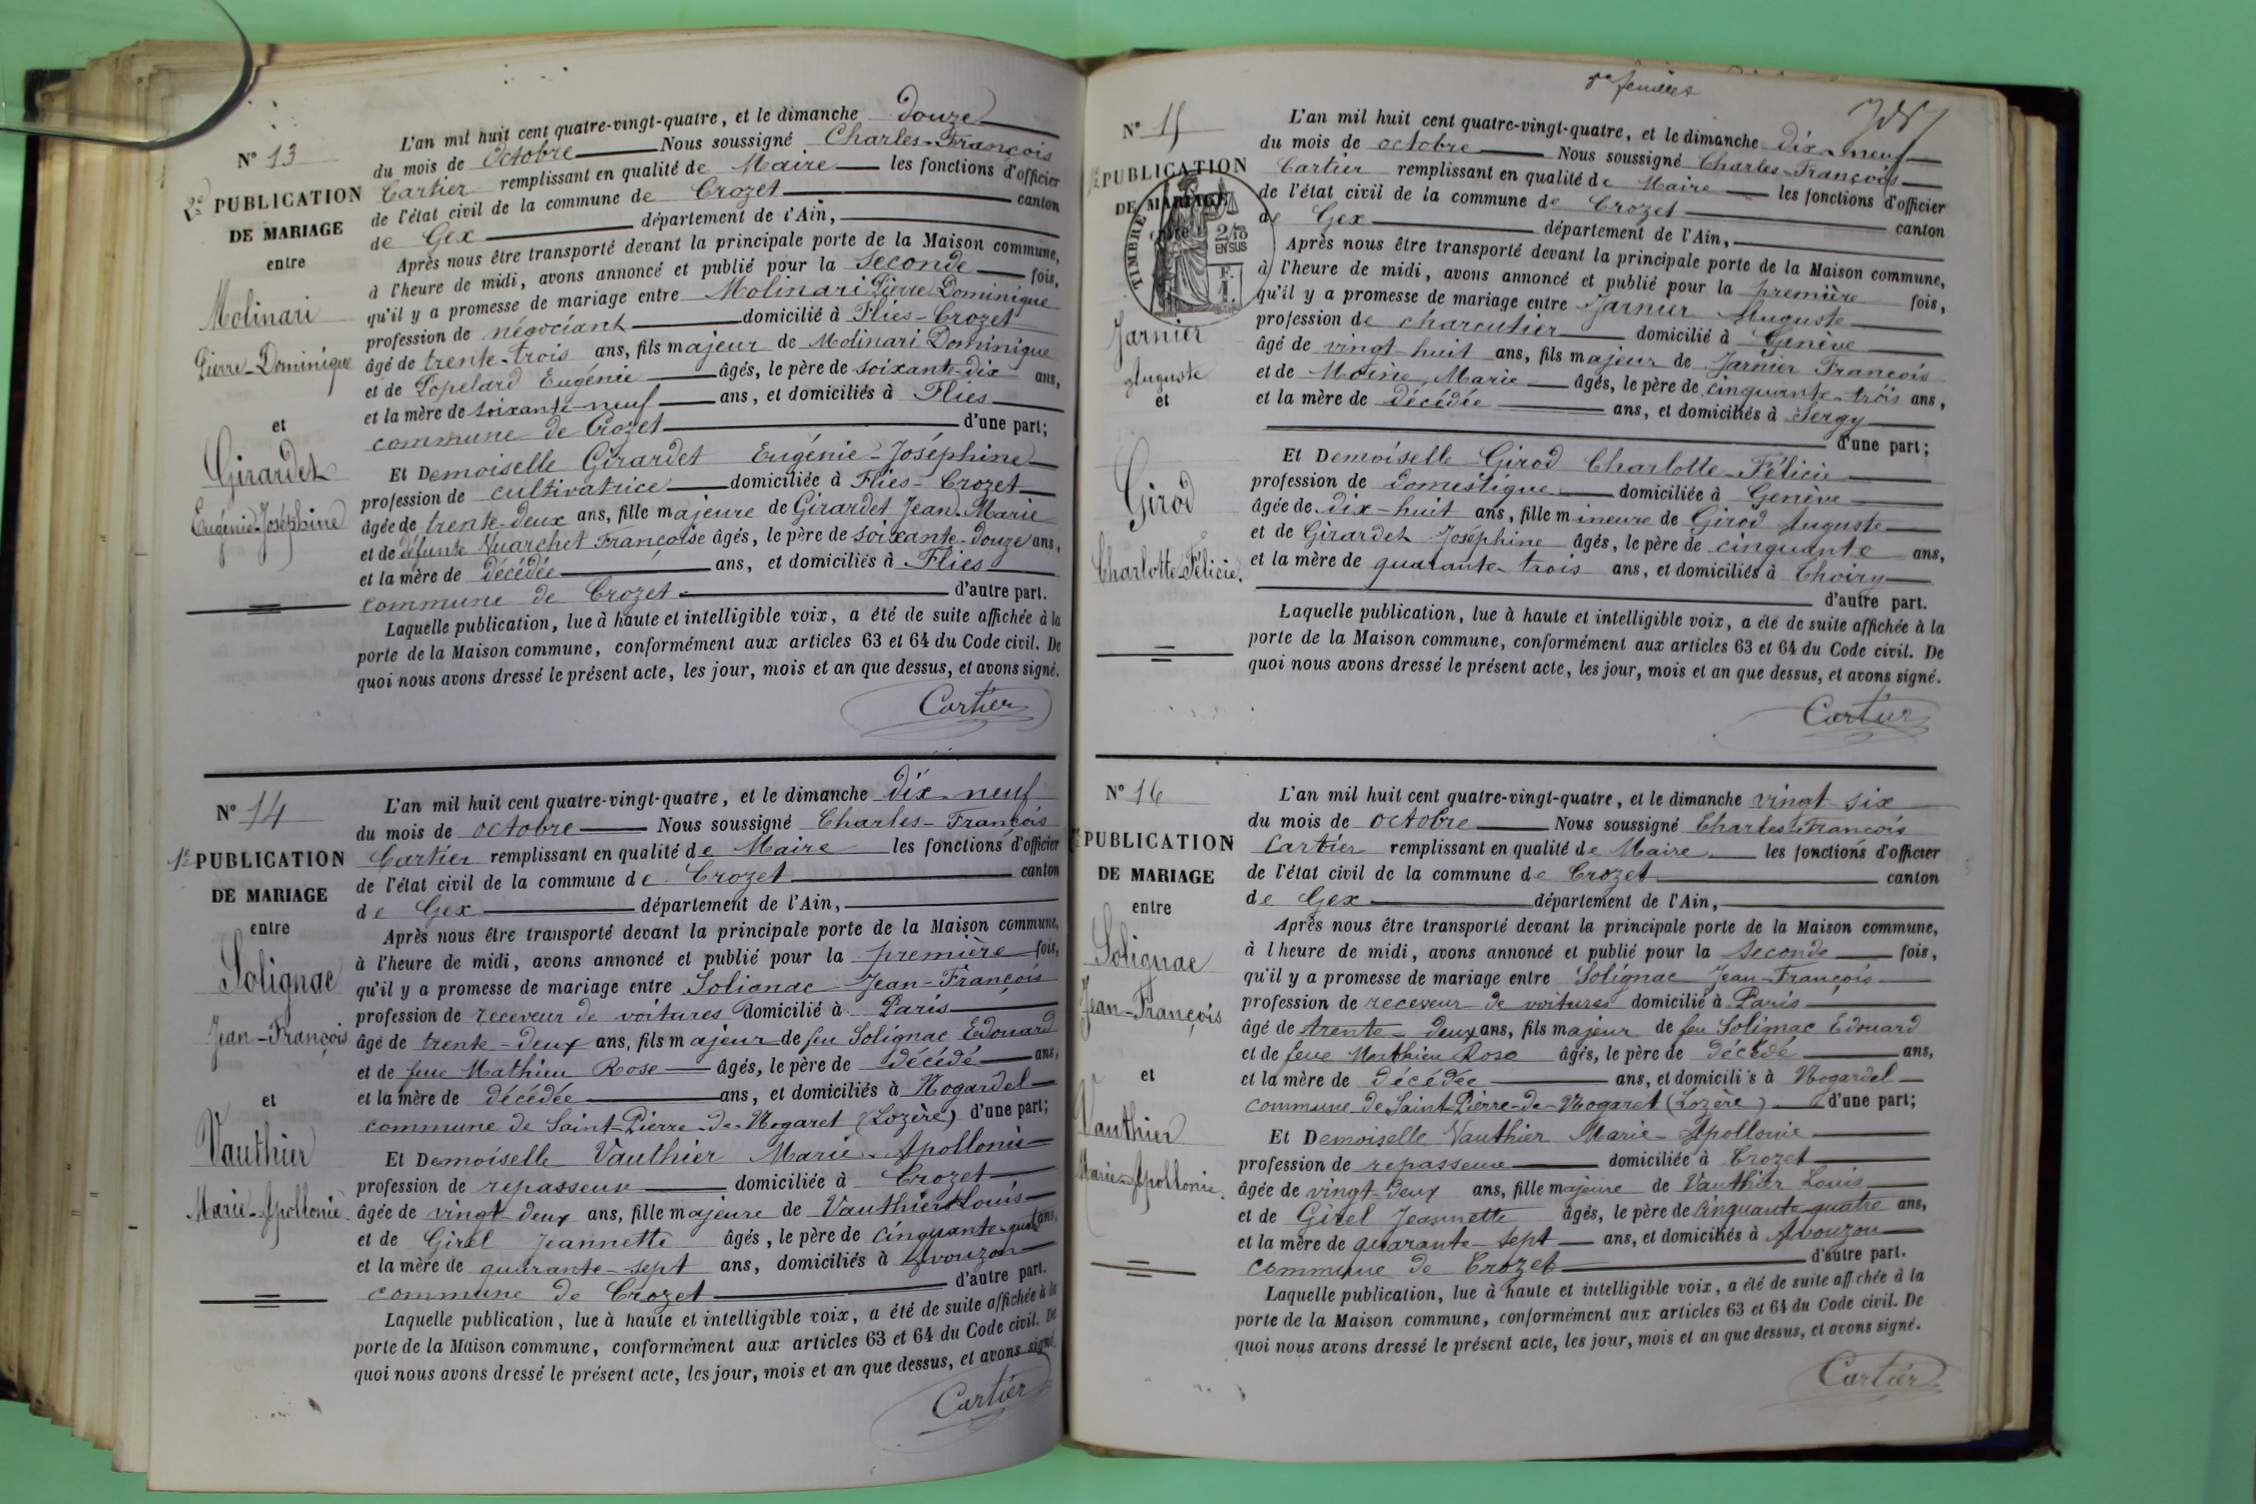 N° 13
2e PUBLICATION
DE MARIAGE
entre
Molinari
Pierre-Dominique
et
Girardet
Eugénie-Joséphine
L'an mil huit cent quatre-vingt-quatre, et le dimanche douze
du mois de Octobre Nous soussigné Charles-François
Cartier remplissant en qualité de Maire les fonctions d'officier
de l'état civil de la commune de Crozet canton
de Gex département de l'Ain,
Après nous être transporté devant la principale porte de la Maison commune,
à l'heure de midi, avons annoncé et publié pour la seconde fois,
qu'il y a promesse de mariage entre Molinari Pierre Dominique
profession de négociant domicilié à Flies-Crozet
âgé de trente-trois ans, fils majeur de Molinari Dominique
et de Popelard Eugénie âgés, le père de soixante-dix ans,
et la mère de soixante-neuf ans, et domiciliés à Flies
commune de Crozet d'une part;
Et Demoiselle Girardet Eugénie-Joséphine
profession de cultivatrice domiciliée à Flies-Crozet
âgée de trente-deux ans, fille majeure de Girardet Jean-Marie
et de défunte Vuarchet Françoise âgés, le père de soixante-douze ans,
et la mère de décédée ans, et domiciliés à Flies
commune de Crozet d'autre part.
Laquelle publication, lue à haute et intelligible voix, a été de suite affichée à la
porte de la Maison commune, conformément aux articles 63 et 64 du Code civil. De
quoi nous avons dressé le présent acte, les jour, mois et an que dessus, et avons signé.
Cartier
N° 14
1e PUBLICATION
DE MARIAGE
entre
Solignac
Jean-François
et
Vauthier
Marie-Apollonie.
L'an mil huit cent quatre-vingt-quatre, et le dimanche dix-neuf
du mois de octobre Nous soussigné Charles-François
Cartier remplissant en qualité de Maire les fonctions d'officier
de l'état civil de la commune de Crozet canton
de Gex département de l'Ain,
Après nous être transporté devant la principale porte de la Maison commune,
à l'heure de midi, avons annoncé et publié pour la première fois,
qu'il y a promesse de mariage entre Solignac Jean-François
profession de receveur de voitures domicilié à Paris
âgé de trente-deux ans, fils majeur de feu Solignac Edouard
et de feue Mathieu Rose âgés, le père de décédé ans,
et la mère de décédée ans, et domiciliés à Nogardel
commune de Saint-Pierre-de-Nogaret (Lozère) d'une part;
Et Demoiselle Vauthier Marie-Apollonie
profession de repasseuse domiciliée à Crozet
âgée de vingt-deux ans, fille majeure de Vauthier Louis
et de Girel Jeannette âgés, le père de cinquante-quatre ans,
et la mère de quarante-sept ans, domiciliés à Avouzon
commune de Crozet d'autre part.
Laquelle publication, lue à haute et intelligible voix, a été de suite affichée à la
porte de la Maison commune, conformément aux articles 63 et 64 du Code civil. De
quoi nous avons dressé le présent acte, les jour, mois et an que dessus, et avons signé.
Cartier
N° 15
1e PUBLICATION
DE MARIAGE
TIMBRE
2/10
EN SUS
F.
1.
Jarnier
Auguste
et
Girod
Charlotte-Félicie.
L'an mil huit cent quatre-vingt-quatre, et le dimanche dix-neuf
du mois de octobre Nous soussigné Charles-François
Cartier remplissant en qualité de Maire les fonctions d'officier
de l'état civil de la commune de Crozet canton
de Gex département de l'Ain,
Après nous être transporté devant la principale porte de la Maison commune,
à l'heure de midi, avons annoncé et publié pour la première fois,
qu'il y a promesse de mariage entre Jarnier Auguste
profession de charcutier domicilié à Genève
âgé de vingt-huit ans, fils majeur de Jarnier François
et de Moine Marie âgés, le père de cinquante-trois ans,
et la mère de décédée ans, et domiciliés à Sergy
d'une part;
Et Demoiselle Girod Charlotte-Félicie
profession de domestique domiciliée à Genève
âgée de dix-huit ans, fille mineure de Girod Auguste
et de Girardet Joséphine âgés, le père de cinquante ans,
et la mère de quarante-trois ans, et domiciliés à Choiry
d'autre part.
Laquelle publication, lue à haute et intelligible voix, a été de suite affichée à la
porte de la Maison commune, conformément aux articles 63 et 64 du Code civil. De
quoi nous avons dressé le présent acte, les jour, mois et an que dessus, et avons signé.
Cartier
N° 16
PUBLICATION
DE MARIAGE
entre
Solignac
Jean-François
et
Vauthier
Marie-Apollonie.
L'an mil huit cent quatre-vingt-quatre, et le dimanche vingt-six
du mois de octobre Nous soussigné Charles-François
Cartier remplissant en qualité de Maire les fonctions d'officier
de l'état civil de la commune de Crozet canton
de Gex département de l'Ain,
Après nous être transporté devant la principale porte de la Maison commune,
à l'heure de midi, avons annoncé et publié pour la seconde fois,
qu'il y a promesse de mariage entre Solignac Jean-François
profession de receveur de voitures domicilié à Paris
âgé de trente-deux ans, fils majeur de feu Solignac Edouard
et de feue Mathieu Rose âgés, le père de décédé ans,
et la mère de décédée ans, et domiciliés à Nogardel
commune de Saint-Pierre-de-Nogaret (Lozère) d'une part;
Et Demoiselle Vauthier Marie-Apollonie
profession de repasseuse domiciliée à Crozet
âgée de vingt-deux ans, fille majeure de Vauthier Louis
et de Girel Jeannette âgés, le père de cinquante-quatre ans,
et la mère de quarante-sept ans, et domiciliés à Avouzon
commune de Crozet d'autre part.
Laquelle publication, lue à haute et intelligible voix, a été de suite affichée à la
porte de la Maison commune, conformément aux articles 63 et 64 du Code civil. De
quoi nous avons dressé le présent acte, les jour, mois et an que dessus, et avons signé.
Cartier